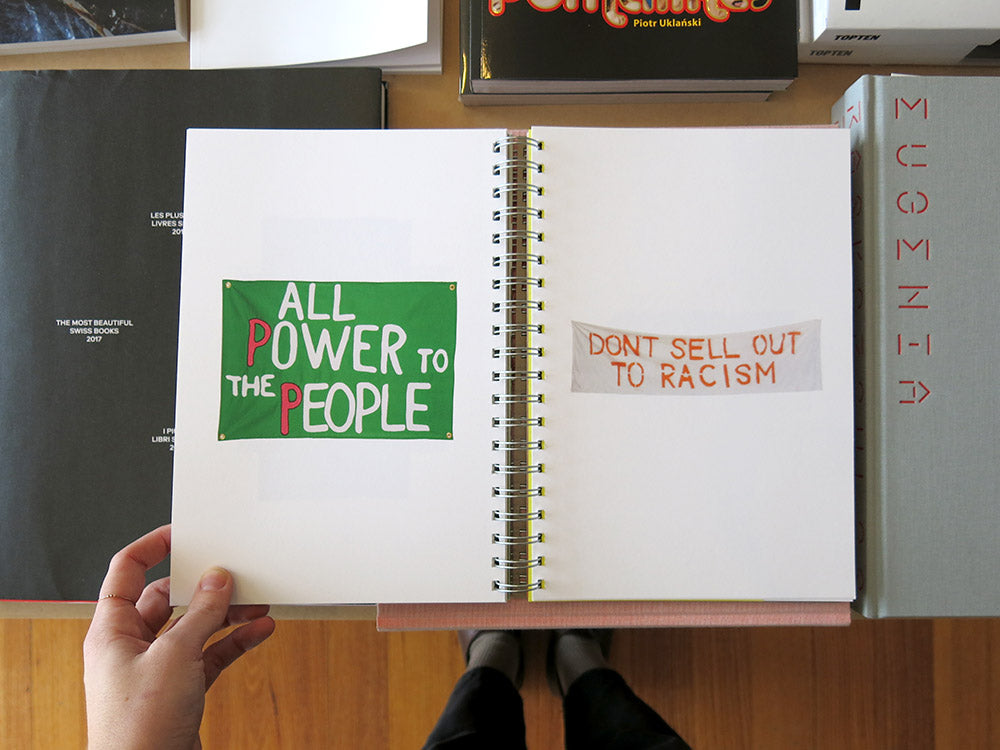 Piotr Uklański
TOPTEN
TOPTEN
LES PLUS
LIVRES
THE MOST BEAUTIFUL
SWISS BOOKS
2017
LIBRI
ALL
POWER TO
THE PEOPLE
DONT SELL OUT
TO RACISM
MUOMNIA